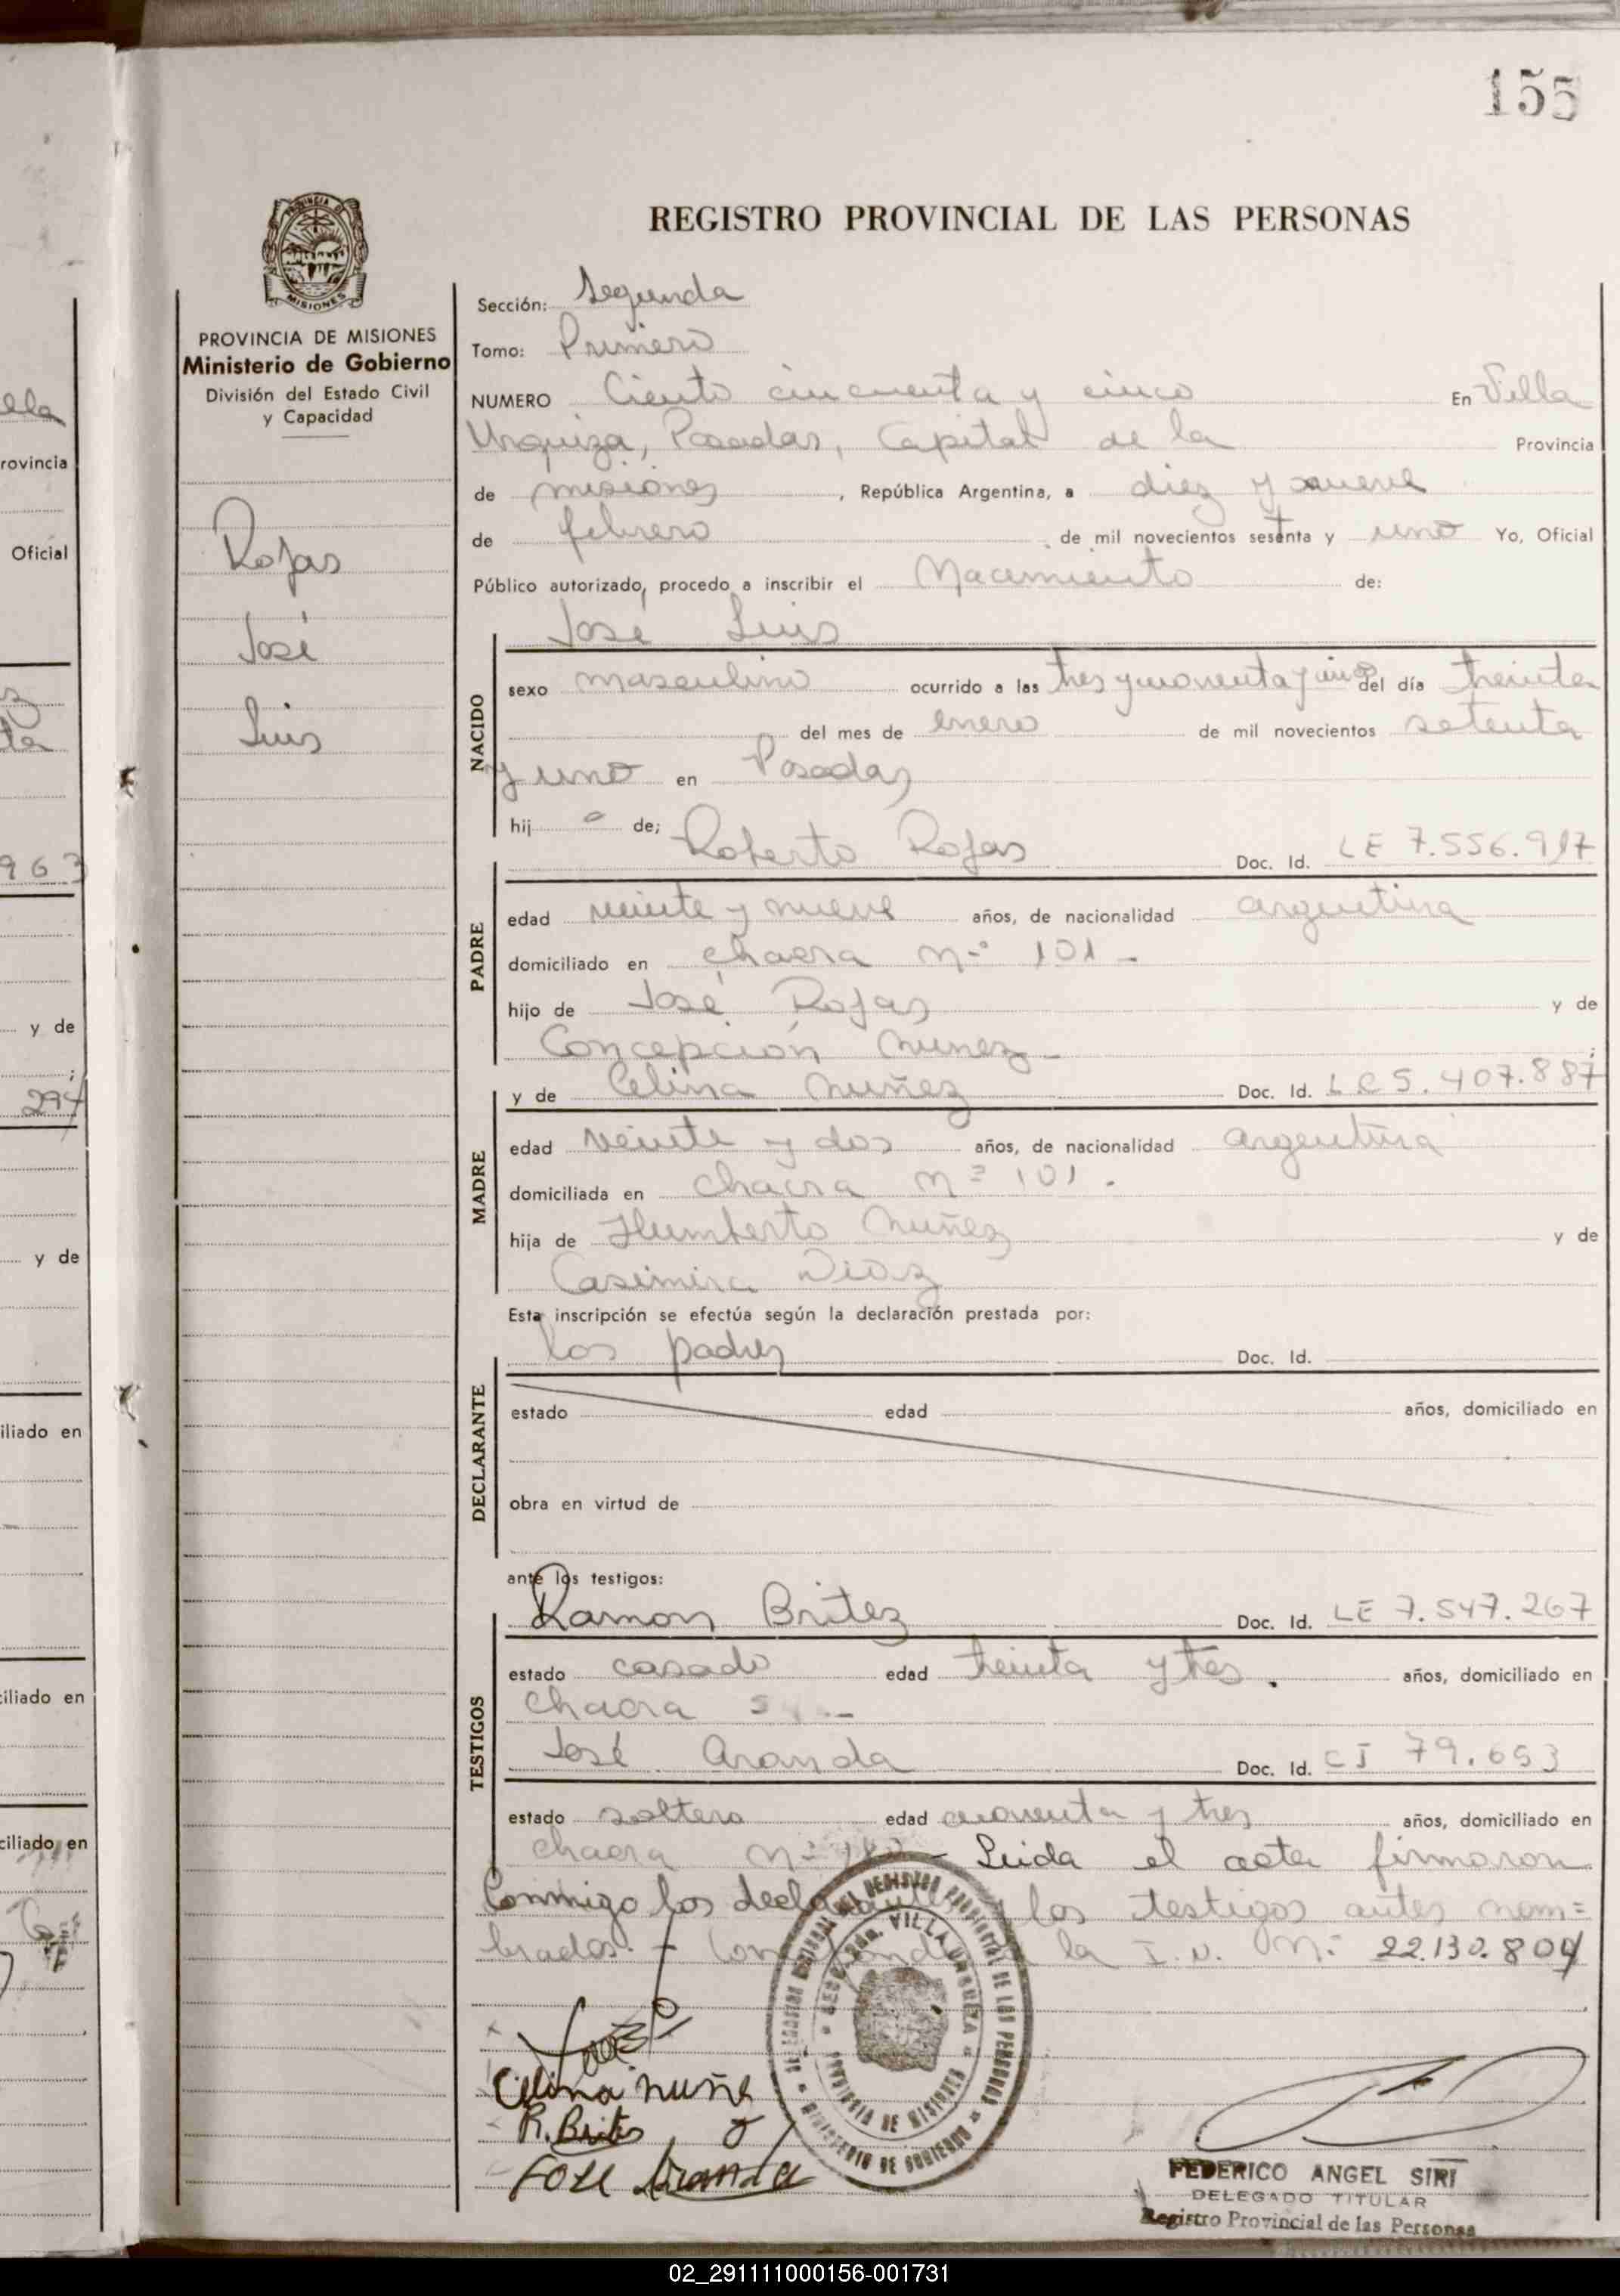 155
REGISTRO PROVINCIAL DE LAS PERSONAS
PROVINCIA DE MISIONES
Ministerio de Gobierno
División del Estado Civil
y Capacidad
Rojas
José
Luis
Sección: Segunda
Tomo: Primero
NUMERO Ciento cincuenta y cinco En Villa
Urquiza, Posadas, Capital de la Provincia
de misiones, República Argentina, a diez y nueve
de febrero de mil novecientos sesenta y uno Yo, Oficial
Público autorizado, procedo a inscribir el Nacimiento de:
José Luis
NACIDO
sexo masculino ocurrido a las tres y cuarenta y cinco del día treinta
del mes de enero de mil novecientos setenta
y uno en Posadas
hij o de; Roberto Rojas Doc. Id. LE 7.556.917
PADRE
edad veinte y nueve años, de nacionalidad argentina
domiciliado en chacra nº 101 -
hijo de José Rojas y de
Concepción Nunez - ;
y de Celina Nuñez Doc. Id. LC 5.407.887
MADRE
edad veinte y dos años, de nacionalidad argentina
domiciliada en chacra nº 101.
hija de Humberto Nuñez y de
Casimira Diaz
Esta inscripción se efectúa según la declaración prestada por:
los padres Doc. Id.
DECLARANTE
estado edad años, domiciliado en
obra en virtud de
ante los testigos:
Ramon Britez Doc. Id. LE 7.547.267
TESTIGOS
estado casado edad treinta y tres. años, domiciliado en
chacra
José Aranda Doc. Id. CI 79.653
estado soltero edad cuarenta y tres años, domiciliado en
chacra nº - Leida el acta firmaron
conmigo los los testigos antes nom=
brados. - la I.N. Nº 22.130.804
Celina nuñe
R. Brites
José Aranda
VILLA URQUIZA
PROVINCIA DE MISIONES
MINISTERIO DE GOBIERNO
FEDERICO ANGEL SIRI
DELEGADO TITULAR
Registro Provincial de las Personas
02_291111000156-001731